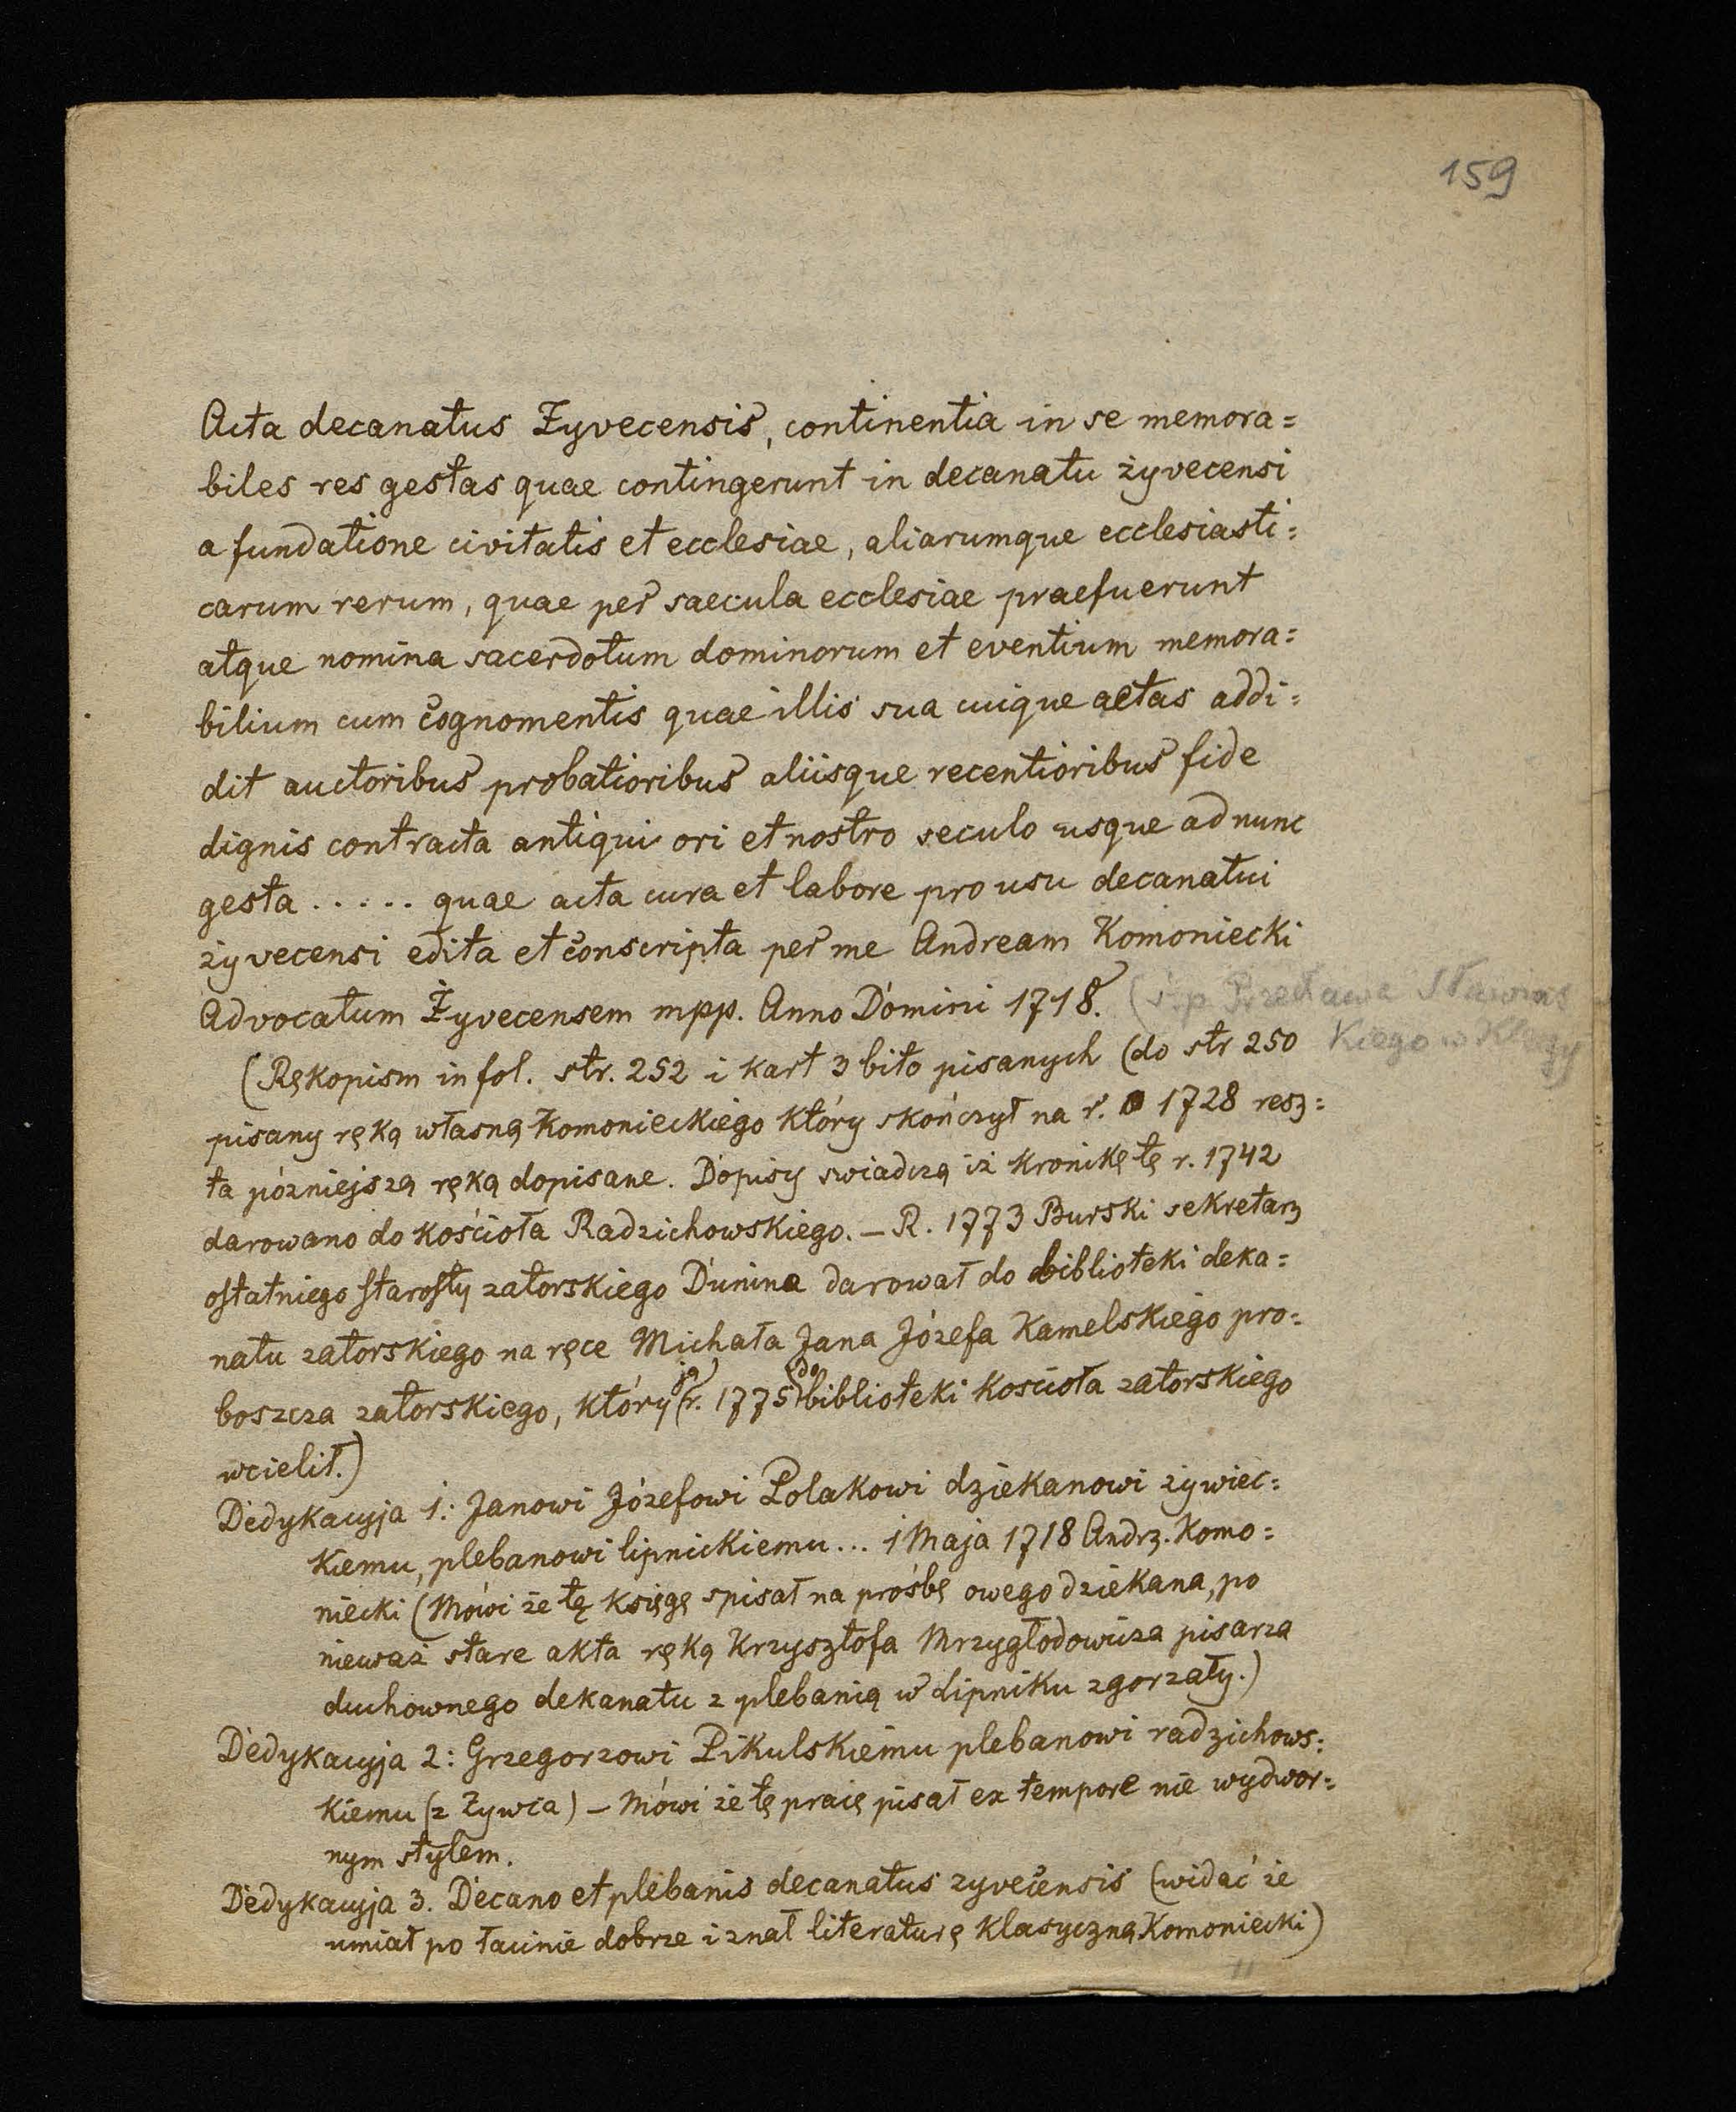 159
Acta decanatus Żyvecensis, continentia in se memora=
biles res gestas quae contingerunt in decanatu żyvecensi
a fundatione civitatis et ecclesiae, aliarumque ecclesiasti=
carum rerum, quae per saecula ecclesiae praefuerunt
atque nomina sacerdotum dominorum et eventium memora=
bilium cum cognomentis quae illis sua cuique aetas addi=
dit auctoribus probatioribus aliisque recentioribus fide
dignis contracta antiqui ori et nostro seculo usque ad nunc
gesta ..... quae acta cura et labore pro usu decanatui
żyvecensi edita et conscripta per me Andream Komoniecki
Advocatum Żyvecensem mpp. Anno Domini 1718. (ś.p. Przecława Sławińs
kiego w Kleczy
(Rękopism in fol. str. 252 i kart 3 bito pisanych (do str 250
pisany ręką własną Komonieckiego który skończył na r. 1728 resz=
ta późniejszą ręką dopisane. Dopisy swiadczą iż kronikę tę r. 1742
darowano do kościoła Radzichowskiego. — R. 1773 Burski sekretarz
ostatniego starosty zatorskiego Dunina darował do biblioteki deka=
natu zatorskiego na ręce Michała Jana Józefa Kamelskiego pro=
boszcza zatorskiego, który ją r. 1775 do biblioteki kościoła zatorskiego
wcielił.)
Dedykacyja 1: Janowi Józefowi Polakowi dziekanowi żywiec=
kiemu, plebanowi lipnickiemu... 1 Maja 1718 Andrz. Komo=
niecki (Mówi że tę księgę spisał na prośbę owego dziekana, po
nieważ stare akta ręką Krzysztofa Mrzygłodowicza pisarza
duchownego dekanatu z plebanią w Lipniku zgorzały.)
Dedykacyja 2: Grzegorzowi Pikulskiemu plebanowi radzichows=
kiemu (z Żywca) — Mówi że tę pracę pisał ex tempore nie wydwor=
nym stylem.
Dedykacyja 3. Decano et plebanis decanatus zyvecensis (widać że
umiał po łacinie dobrze i znał literaturę klasyczną Komoniecki)